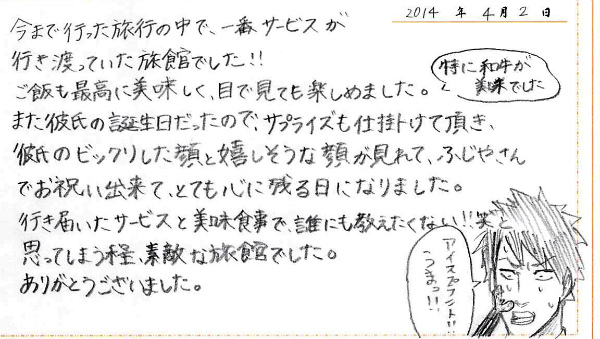 2014 年 4月 2 日
今まで行った旅行の中で、一番サービスが
行き渡っていた旅館でした!!
ご飯も最高に美味しく、目で見ても楽しめました。
特に和牛が
美味でした
また彼氏の誕生日だったので、サプライズも仕掛けて頂き、
彼氏のビックリした顔と嬉しそうな顔が見れて、ふじやさん
でお祝い出来て、とても心に残る日になりました。
行き届いたサービスと美味食事で、誰にも教えたくない!!笑と
思ってしまう程、素敵な旅館でした。
ありがとうございました。
アイスプラント!!
うまっ!!